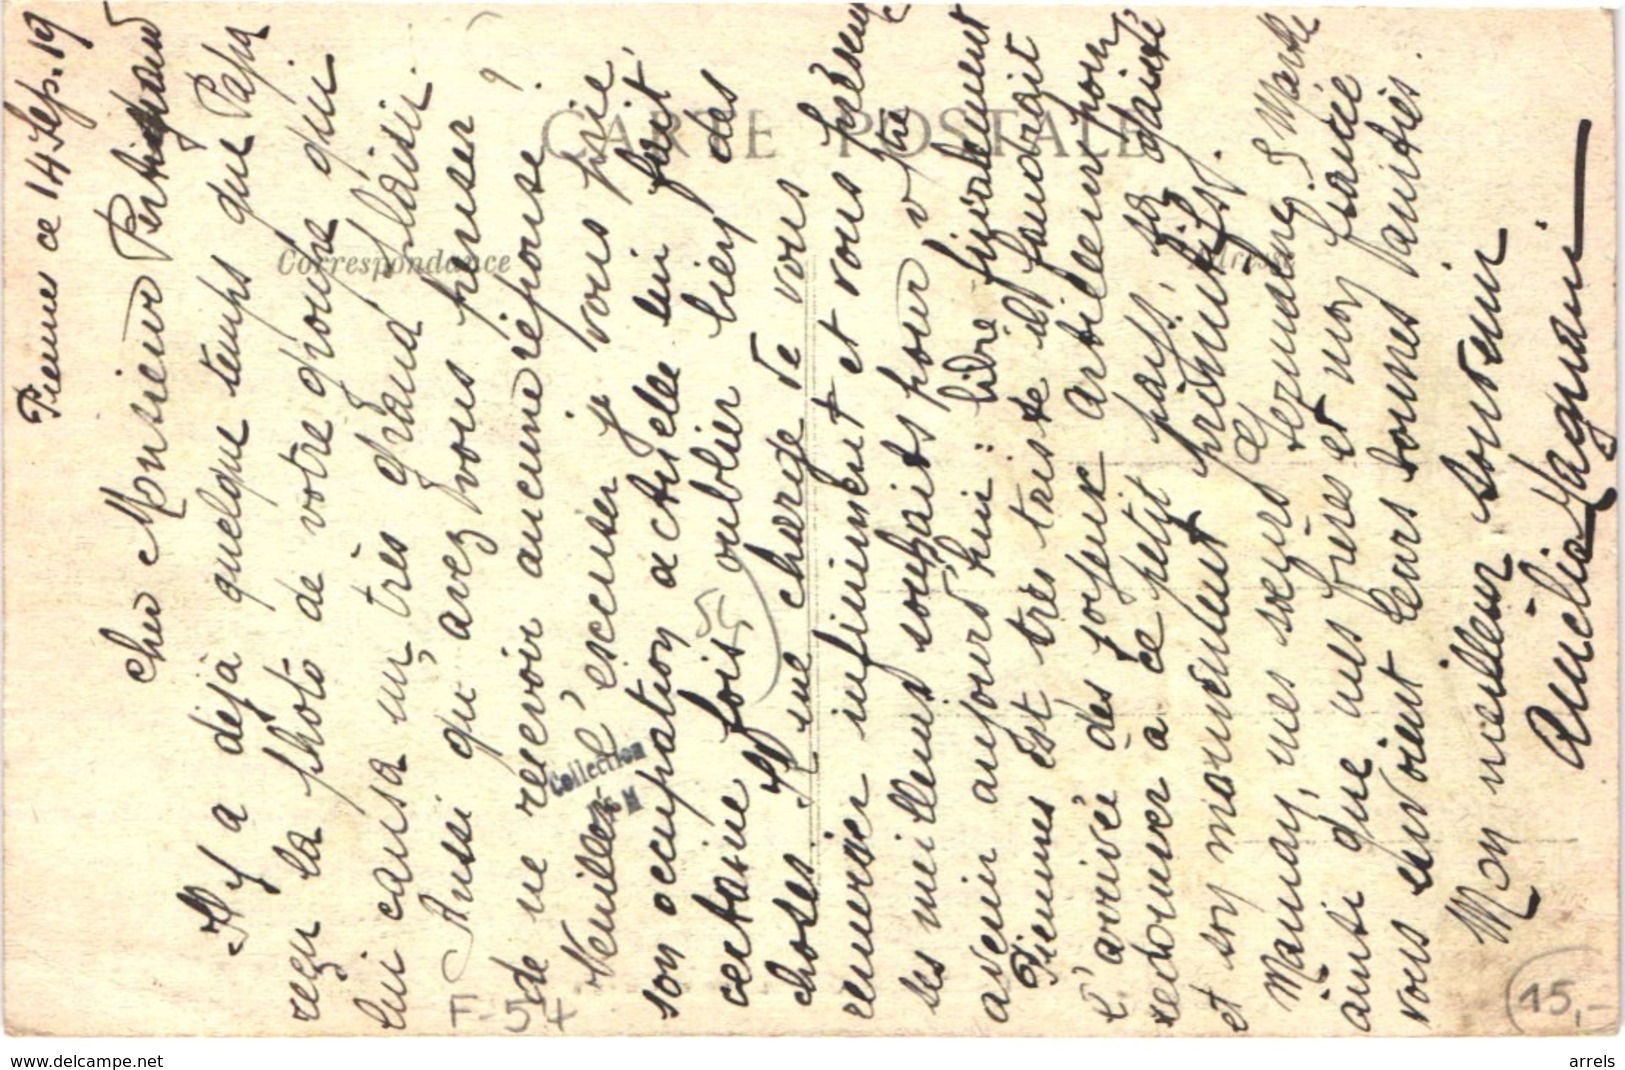 Pienne ce 14 Sep. 19
Cher Monsieur
Il y a déjà quelque temps que Papa
reçu la photo de votre groupe qui
lui causa un très grand plaisir.
Aussi qu'avez vous penser
de ne recevoir aucune réponse ?
Veuillez l'escuser je vous prie,
son occupation actuelle lui fait
certaine fois oublier bien des
choses. Il me charge de vous
remercier infiniment et vous présente
ses meilleurs souhaits pour votre
avenir aujourd'hui : libre finalement
Piennes est très triste il faudrait
l'arrivée des joyeux artilleurs pour
redonner à ce petit pays, sa gaieté
et son mouvement primitifs.
Maman, mes sœurs
ainsi que mes frères et mon fiancé
vous envoient leurs bonnes amitiés.
Mon meilleur souvenir
Amélia Magnani
CARTE POSTALE
Correspondance
Adresse
Collection
F-54
15,-
www.delcampe.net
arrels